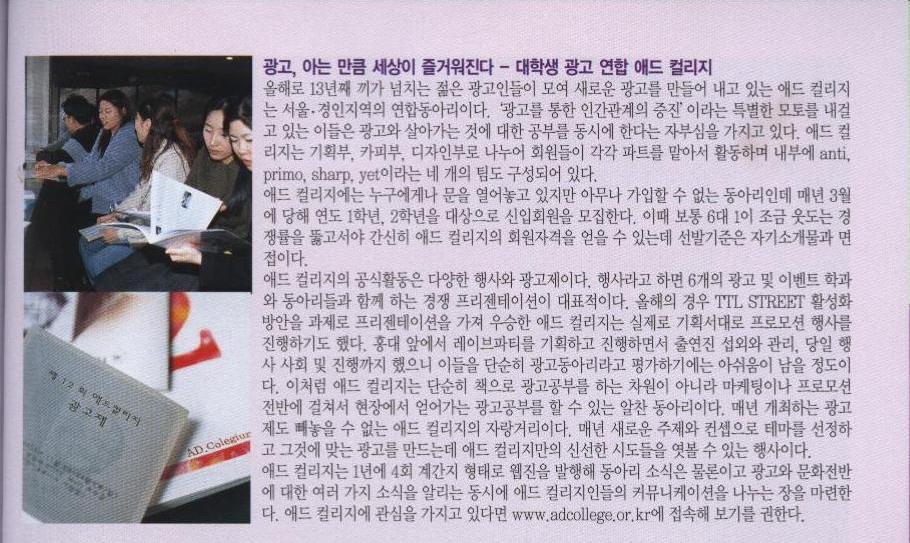 광고, 아는 만큼 세상이 즐거워진다 - 대학생 광고 연합 애드 컬리지
올해로 13년째 끼가 넘치는 젊은 광고인들이 모여 새로운 광고를 만들어 내고 있는 애드 컬리지
는 서울·경인지역의 연합동아리이다. '광고를 통한 인간관계의 증진'이라는 특별한 모토를 내걸
고 있는 이들은 광고와 살아가는 것에 대한 공부를 동시에 한다는 자부심을 가지고 있다. 애드 컬
리지는 기획부, 카피부, 디자인부로 나누어 회원들이 각각 파트를 맡아서 활동하며 내부에 anti,
primo, sharp, yet이라는 네 개의 팀도 구성되어 있다.
애드 컬리지에는 누구에게나 문을 열어놓고 있지만 아무나 가입할 수 없는 동아리인데 매년 3월
에 당해 연도 1학년, 2학년을 대상으로 신입회원을 모집한다. 이때 보통 6대 1이 조금 웃도는 경
쟁률을 뚫고서야 간신히 애드 컬리지의 회원자격을 얻을 수 있는데 선발기준은 자기소개물과 면
접이다.
애드 컬리지의 공식활동은 다양한 행사와 광고제이다. 행사라고 하면 6개의 광고 및 이벤트 학과
와 동아리들과 함께 하는 경쟁 프리젠테이션이 대표적이다. 올해의 경우 TTL STREET 활성화
방안을 과제로 프리젠테이션을 가져 우승한 애드 컬리지는 실제로 기획서대로 프로모션 행사를
진행하기도 했다. 홍대 앞에서 레이브파티를 기획하고 진행하면서 출연진 섭외와 관리, 당일 행
사 사회 및 진행까지 했으니 이들을 단순히 광고동아리라고 평가하기에는 아쉬움이 남을 정도이
다. 이처럼 애드 컬리지는 단순히 책으로 광고공부를 하는 차원이 아니라 마케팅이나 프로모션
전반에 걸쳐서 현장에서 얻어가는 광고공부를 할 수 있는 알찬 동아리이다. 매년 개최하는 광고
제도 빼놓을 수 없는 애드 컬리지의 자랑거리이다. 매년 새로운 주제와 컨셉으로 테마를 선정하
고 그것에 맞는 광고를 만드는데 애드 컬리지만의 신선한 시도들을 엿볼 수 있는 행사이다.
애드 컬리지는 1년에 4회 계간지 형태로 웹진을 발행해 동아리 소식은 물론이고 광고와 문화전반
에 대한 여러 가지 소식을 알리는 동시에 애드 컬리지인들의 커뮤니케이션을 나누는 장을 마련한
다. 애드 컬리지에 관심을 가지고 있다면 www.adcollege.or.kr에 접속해 보기를 권한다.
제 12 회 애드컬리지
광고제
AD.Colegiun